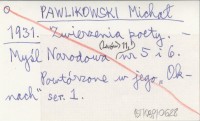 PAWLIKOWSKI Michał
1931. Zwierzenia poety. –
Myśl Narodowa nr 5 i 6.
Powtórzone w jego „Ok-
nach" ser. 1.